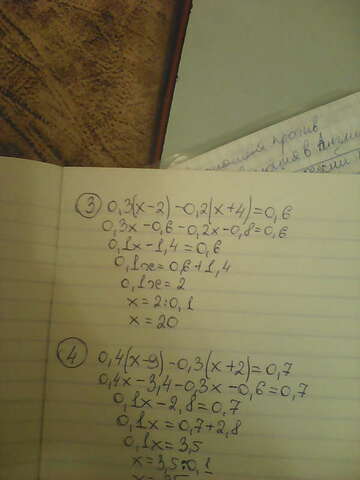 против
в Англии
3 0,3(x-2)-0,2(x+4)=0,6
0,3x-0,6-0,2x-0,8=0,6
0,1x-1,4=0,6
0,1x=0,6+1,4
0,1x=2
x=2:0,1
x=20
4 0,4(x-9)-0,3(x+2)=0,7
0,4x-3,4-0,3x-0,6=0,7
0,1x-2,8=0,7
0,1x=0,7+2,8
0,1x=3,5
x=3,5:0,1
x=35